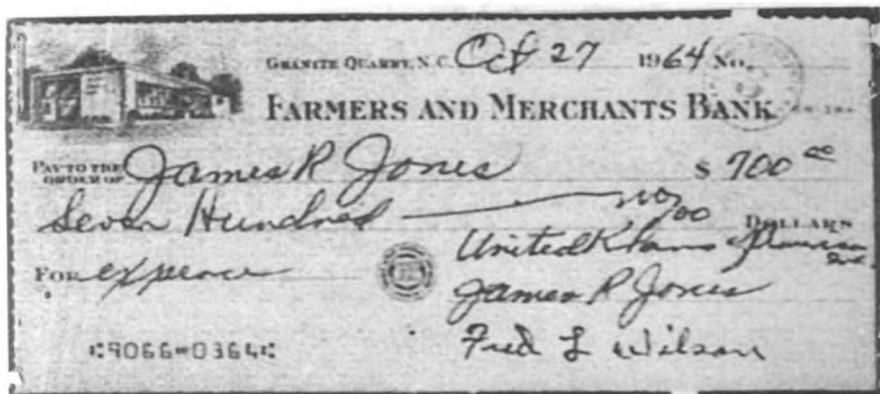 GRANITE QUARRY, N.C. Oct 27 1964 No.
FARMERS AND MERCHANTS BANK
PAY TO THE ORDER OF James R Jones $ 700 00
Seven Hundred no/00 DOLLARS
FOR expence
United Klans of America Inc.
James R Jones
⑆9066⑉0364⑆ Fred L Wilson